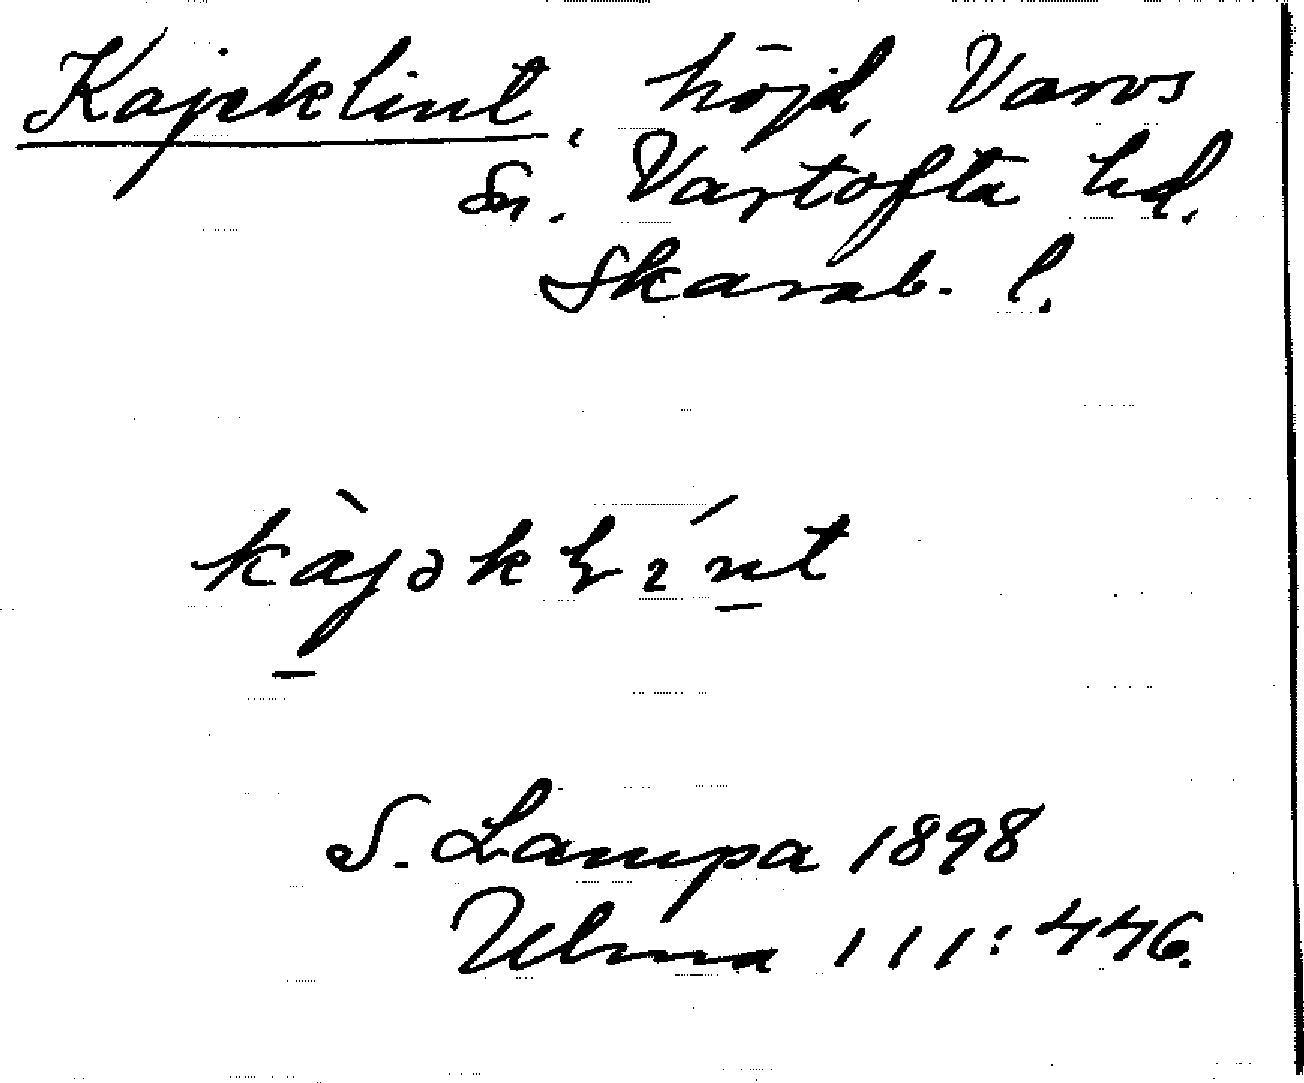 Kajeklint, höjd, Varvs
sn. Vartofta hd.
Skarab. l.
kàjəklɩ́nt
S. Lampa 1898
Ulma 111:446.